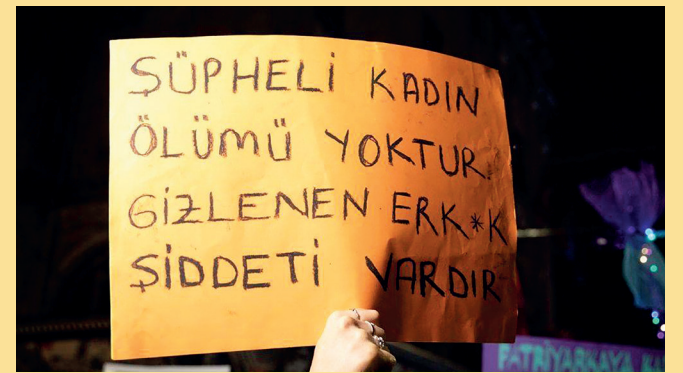 ŞÜPHELİ KADIN
ÖLÜMÜ YOKTUR
GİZLENEN ERK*K
ŞİDDETİ VARDIR
PATRİYARKAYA